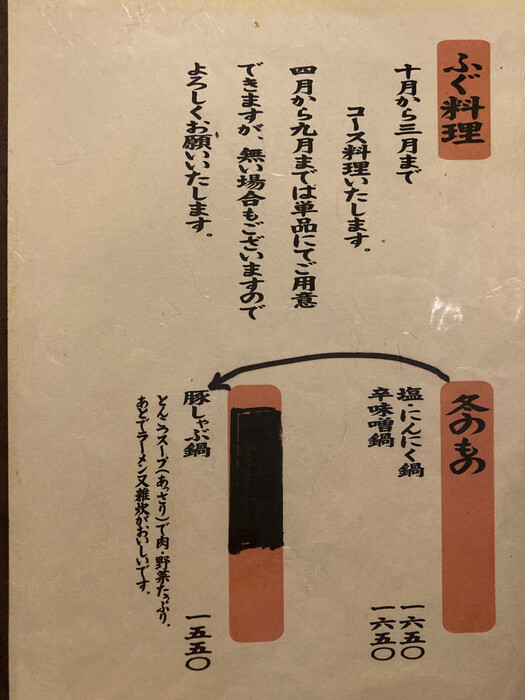 ふぐ料理
十月から三月まで
コース料理いたします。
四月から九月までは単品にてご用意
できますが、無い場合もございますので
よろしくお願いいたします。
冬のもの
塩・にんにく鍋 一六五〇
辛味噌鍋 一六五〇
豚しゃぶ鍋 一五五〇
とんこつスープ(あっさり)で肉・野菜たっぷり。
あとでラーメン又雑炊がおいしいです。